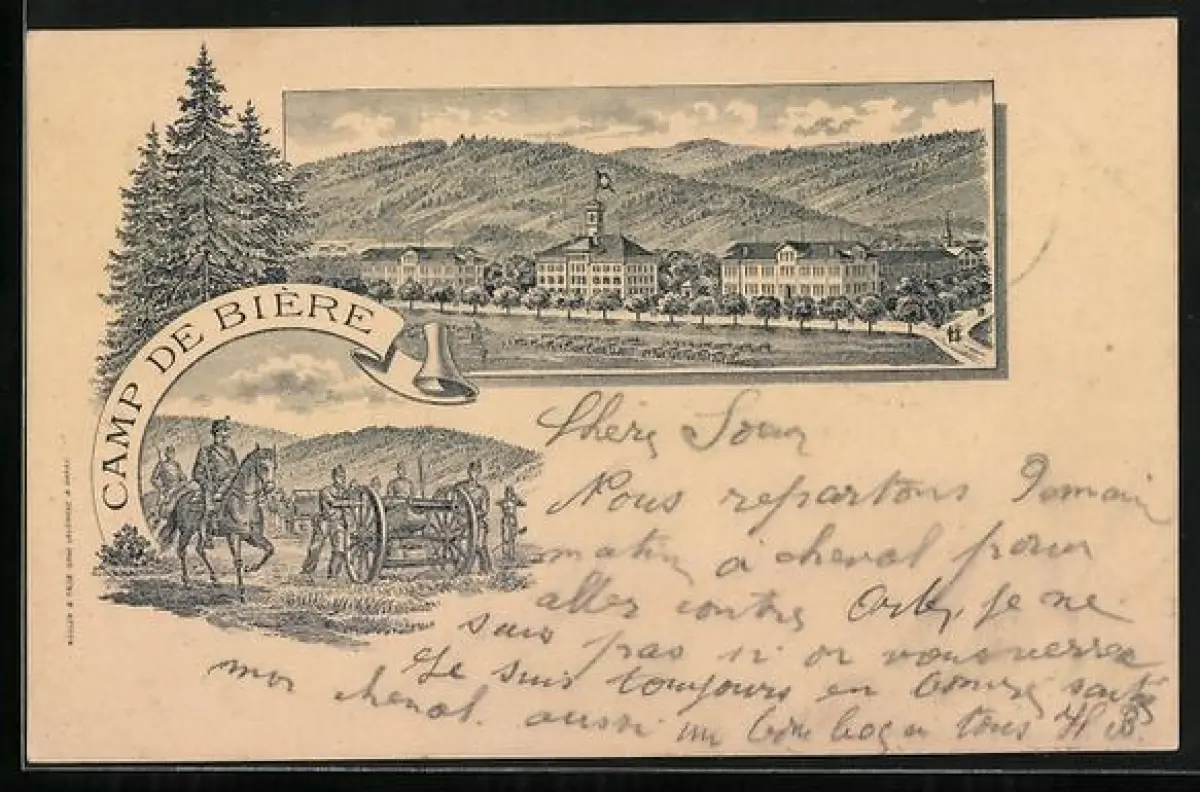 CAMP DE BIÈRE
Chère Soeur
Nous repartons Demain
matin à cheval pour
aller contre Orbe, je ne
sais pas si on vous verra
Je suis toujours en bonne santé
mon cheval aussi un bon à tous H B.